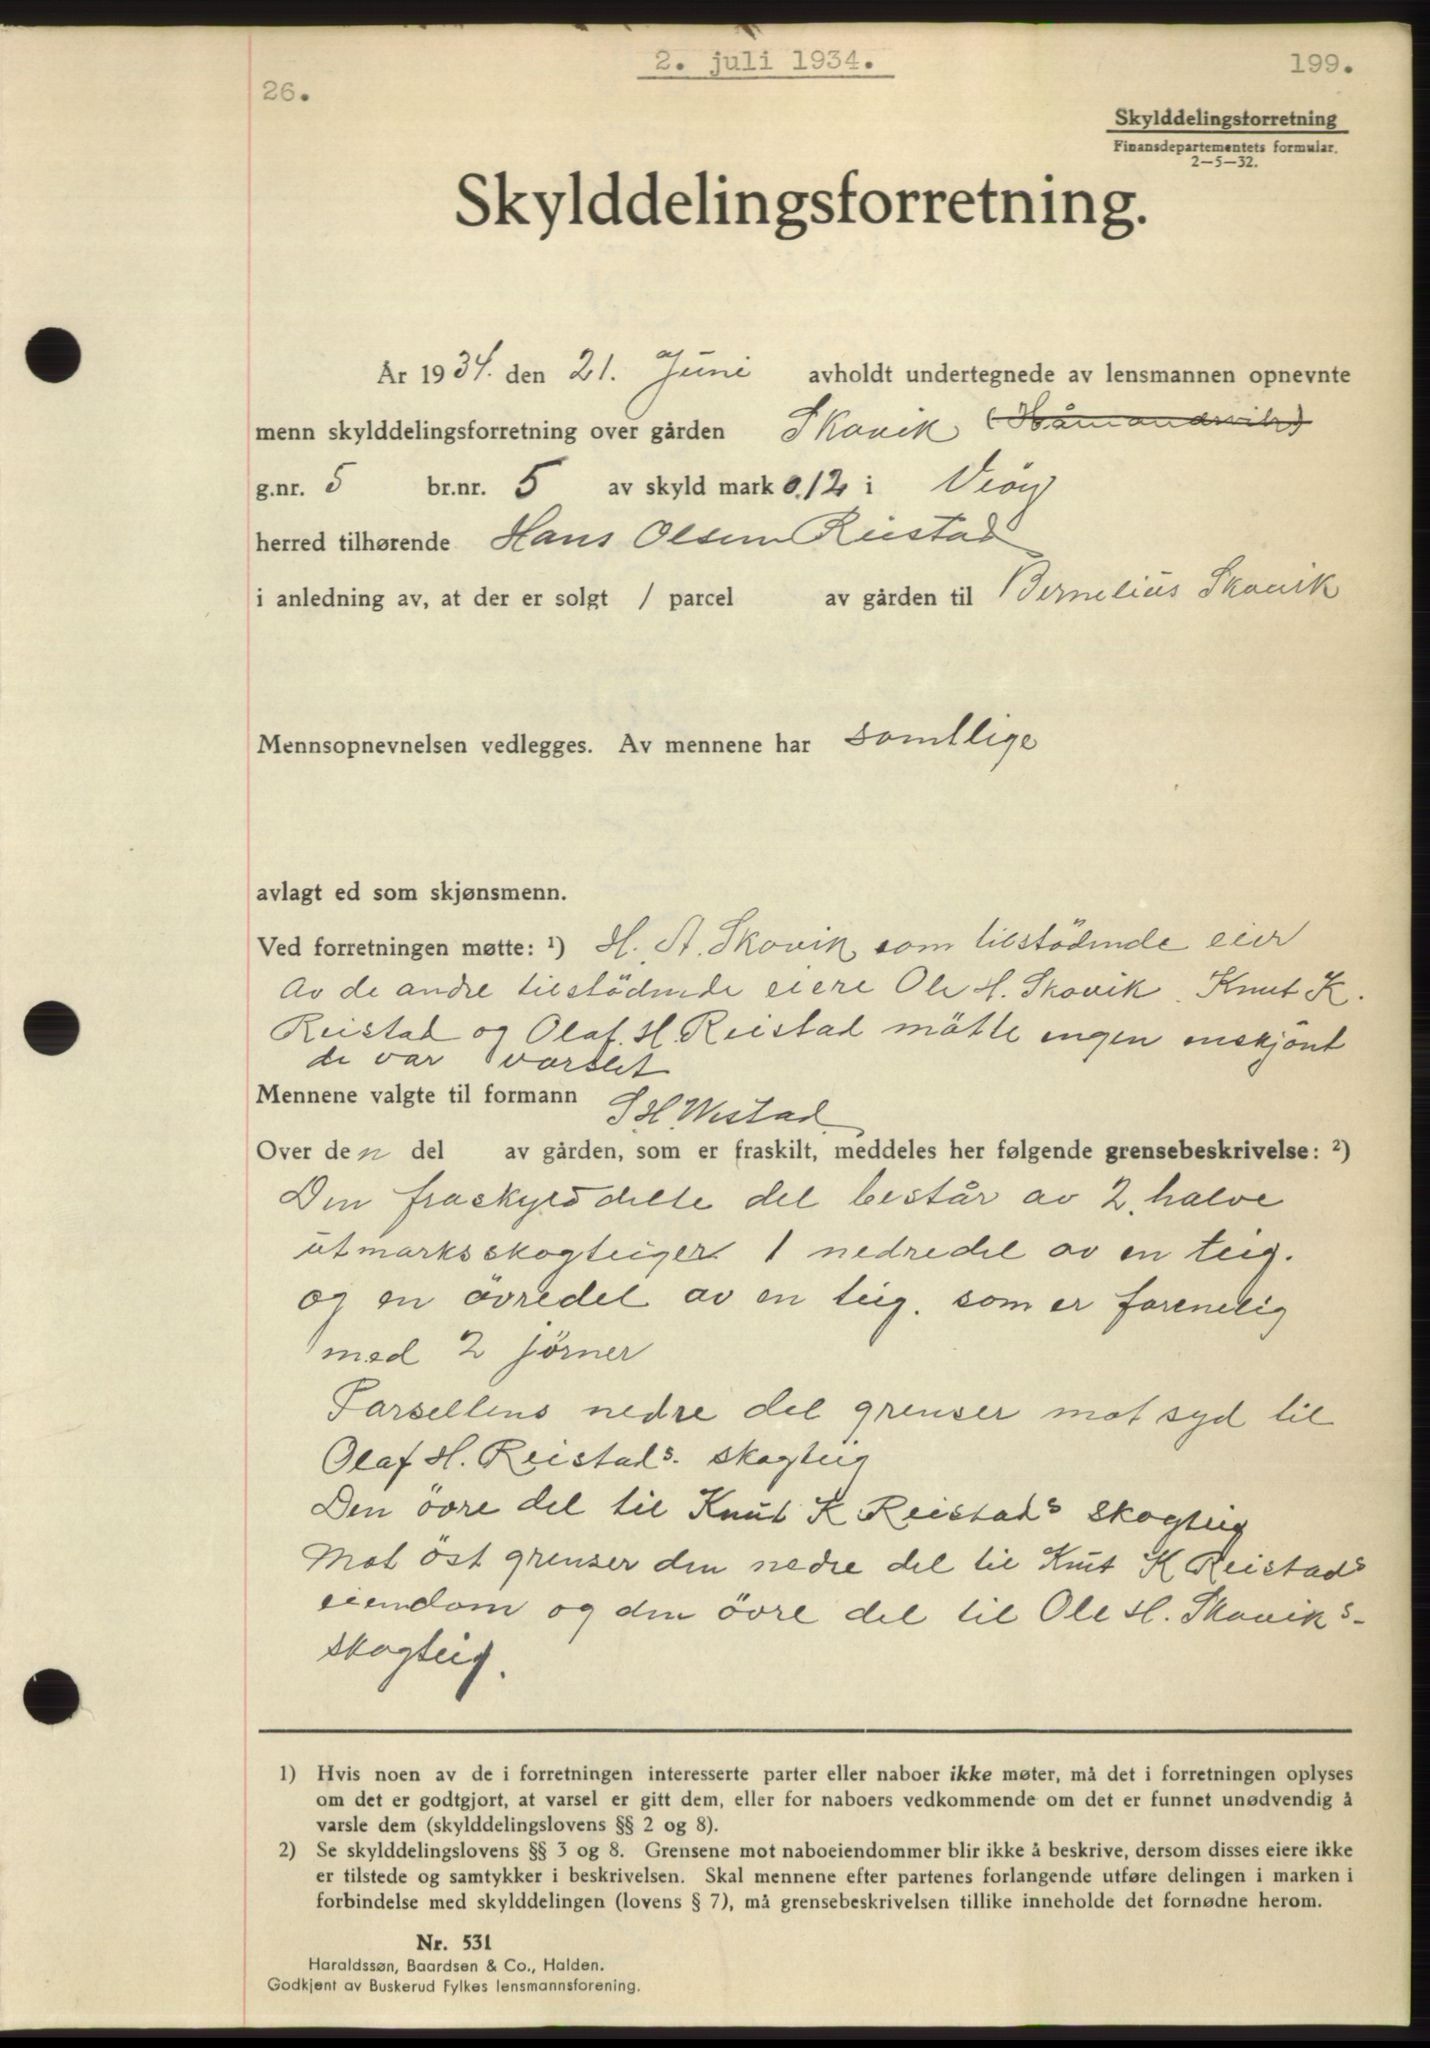 2. juli 1934.
199.
26.
Skylddelingsforretning
Finansdepartementets formular.
2—5—32.
Skylddelingsforretning.
År 1934. den 21. Juni avholdt undertegnede av lensmannen opnevnte
menn skylddelingsforretning over gården Skovik (Håmandsvik)
g.nr. 5 br.nr. 5 av skyld mark 0.12 i Veöy
herred tilhørende Hans Olsen Reistad
i anledning av, at der er solgt 1 parcel av gården til Bernelius Skovik
Mennsopnevnelsen vedlegges. Av mennene har samtlige
avlagt ed som skjønsmenn.
Ved forretningen møtte: ¹) H. A. Skovik som tilstödende eier
Av de andre tilstödende eiere Ole H. Skovik. Knut K.
Reistad og Olaf. H. Reistad mötte ingen enskjönt
de var varslet
Mennene valgte til formann S. H. Westad
Over den del av gården, som er fraskilt, meddeles her følgende grensebeskrivelse: ²)
Den fraskylddelte del består av 2. halve
utmarksskogteiger 1 nedredel av en teig.
og en övredel av en teig. som er forenelig
med 2 jörner
Parsellens nedre del grenser mot syd til
Olaf H. Reistads. skogteig
Den övre del til Knut K Reistads skogteig
Mot öst grenser den nedre del til Knut K Reistads
eiendom og den övre del til Ole H. Skoviks-
skogteig.
1) Hvis noen av de i forretningen interesserte parter eller naboer ikke møter, må det i forretningen oplyses
om det er godtgjort, at varsel er gitt dem, eller for naboers vedkommende om det er funnet unødvendig å
varsle dem (skylddelingslovens §§ 2 og 8).
2) Se skylddelingslovens §§ 3 og 8. Grensene mot naboeiendommer blir ikke å beskrive, dersom disses eiere ikke
er tilstede og samtykker i beskrivelsen. Skal mennene efter partenes forlangende utføre delingen i marken i
forbindelse med skylddelingen (lovens § 7), må grensebeskrivelsen tillike inneholde det fornødne herom.
Nr. 531
Haraldssøn, Baardsen & Co., Halden.
Godkjent av Buskerud Fylkes lensmannsforening.